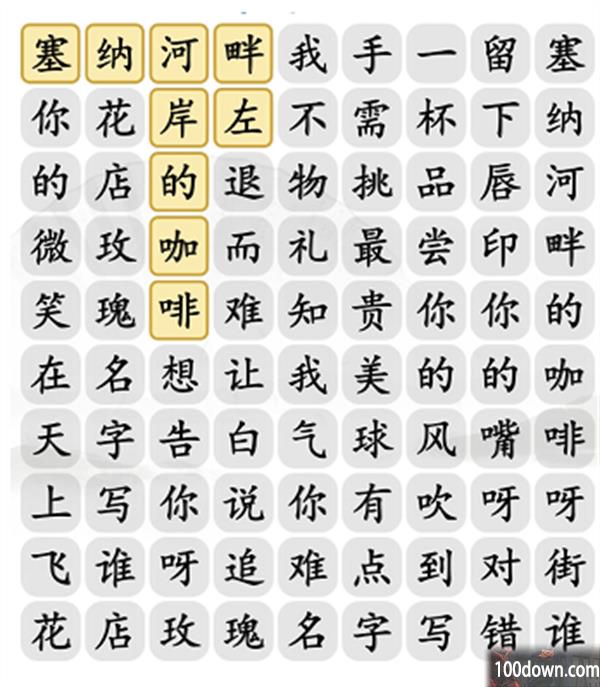 塞纳河畔我手一留塞
你花岸左不需杯下纳
的店的退物挑品唇河
微玫咖而礼最尝印畔
笑瑰啡难知贵你你的
在名想让我美的的咖
天字告白气球风嘴啡
上写你说你有吹呀呀
飞谁呀追难点到对街
花店玫瑰名字写错谁
100down.com